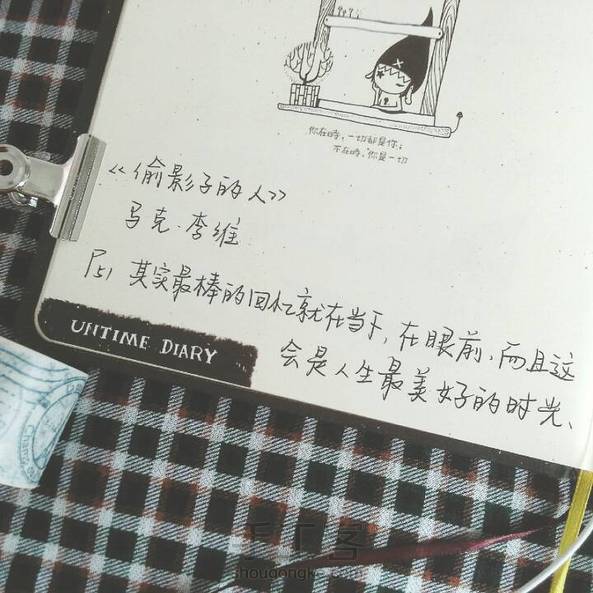 你在时，一切都是你；
不在时，你是一切
《偷影子的人》
马克·李维
P51 其实最棒的回忆就在当下，在眼前，而且这
会是人生最美好的时光、
UNTIME DIARY
手工客